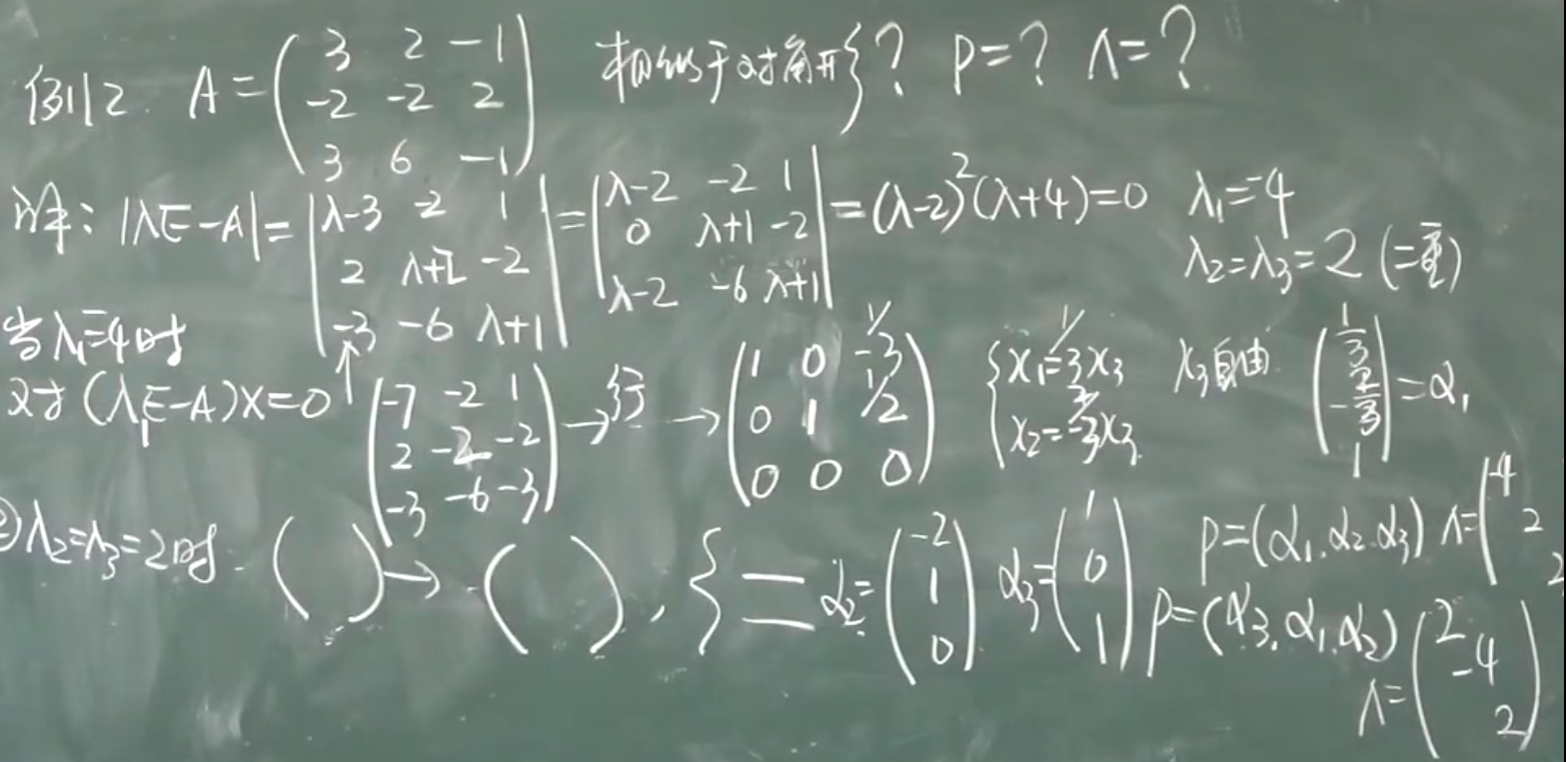 例12. A=(3 2 -1; -2 -2 2; 3 6 -1) 相似于对角形? P=? Λ=?
解: |λE-A|=|λ-3 -2 1; 2 λ+2 -2; -3 -6 λ+1|=|λ-2 -2 1; 0 λ+1 -2; λ-2 -6 λ+1|=(λ-2)²(λ+4)=0 λ₁=-4
λ₂=λ₃=2 (二重)
当λ₁=-4时
对(λ₁E-A)X=0 (-7 -2 1; 2 -2 -2; -3 -6 -3)→行→(1 0 -1/3; 0 1 1/2; 0 0 0) {x₁=1/3x₃ x₂=-2/3x₃ x₃自由. (1/3; -2/3; 1)=α₁
②λ₂=λ₃=2时. ( )→( ), { = α₂=(-2; 1; 0) α₃=(1; 0; 1) P=(α₁.α₂.α₃) Λ=(-4 2 2)
P=(α₃.α₁.α₂) Λ=(2 -4 2)